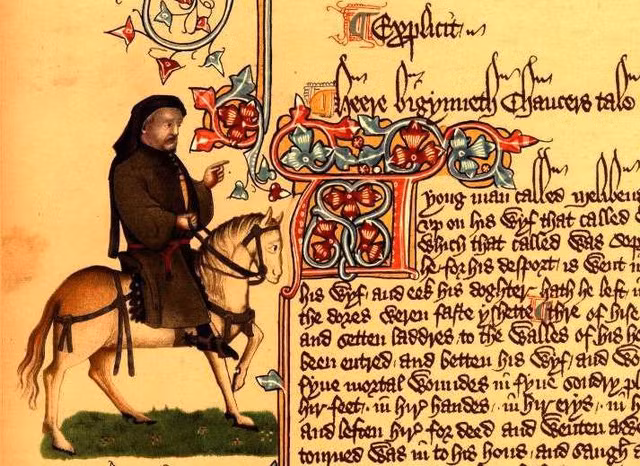 Explicit
Heere bigynneth Chaucers tale
Yong man called Melibeus
vp on his wyf that called
which that called was Sop
he for his desport is went in
his wyf and eek his doghter hath he left in
the dores weren faste yshette Thre of hise
and setten laddres to the walles of his h
been entred and betten his wyf and wo
fyue mortal woundes in fyue sondry p
hir feet in hir handes in hir erys in h
and leften hir for deed and wenten awe
tourned was in to his hous and saugh